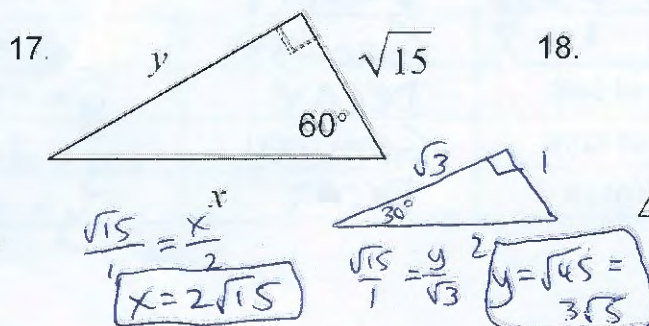 17.
y
√15
18.
60°
x
√3
1
30°
2
√15/1 = x/2
x = 2√15
√15/1 = y/√3
y = √45 =
3√5